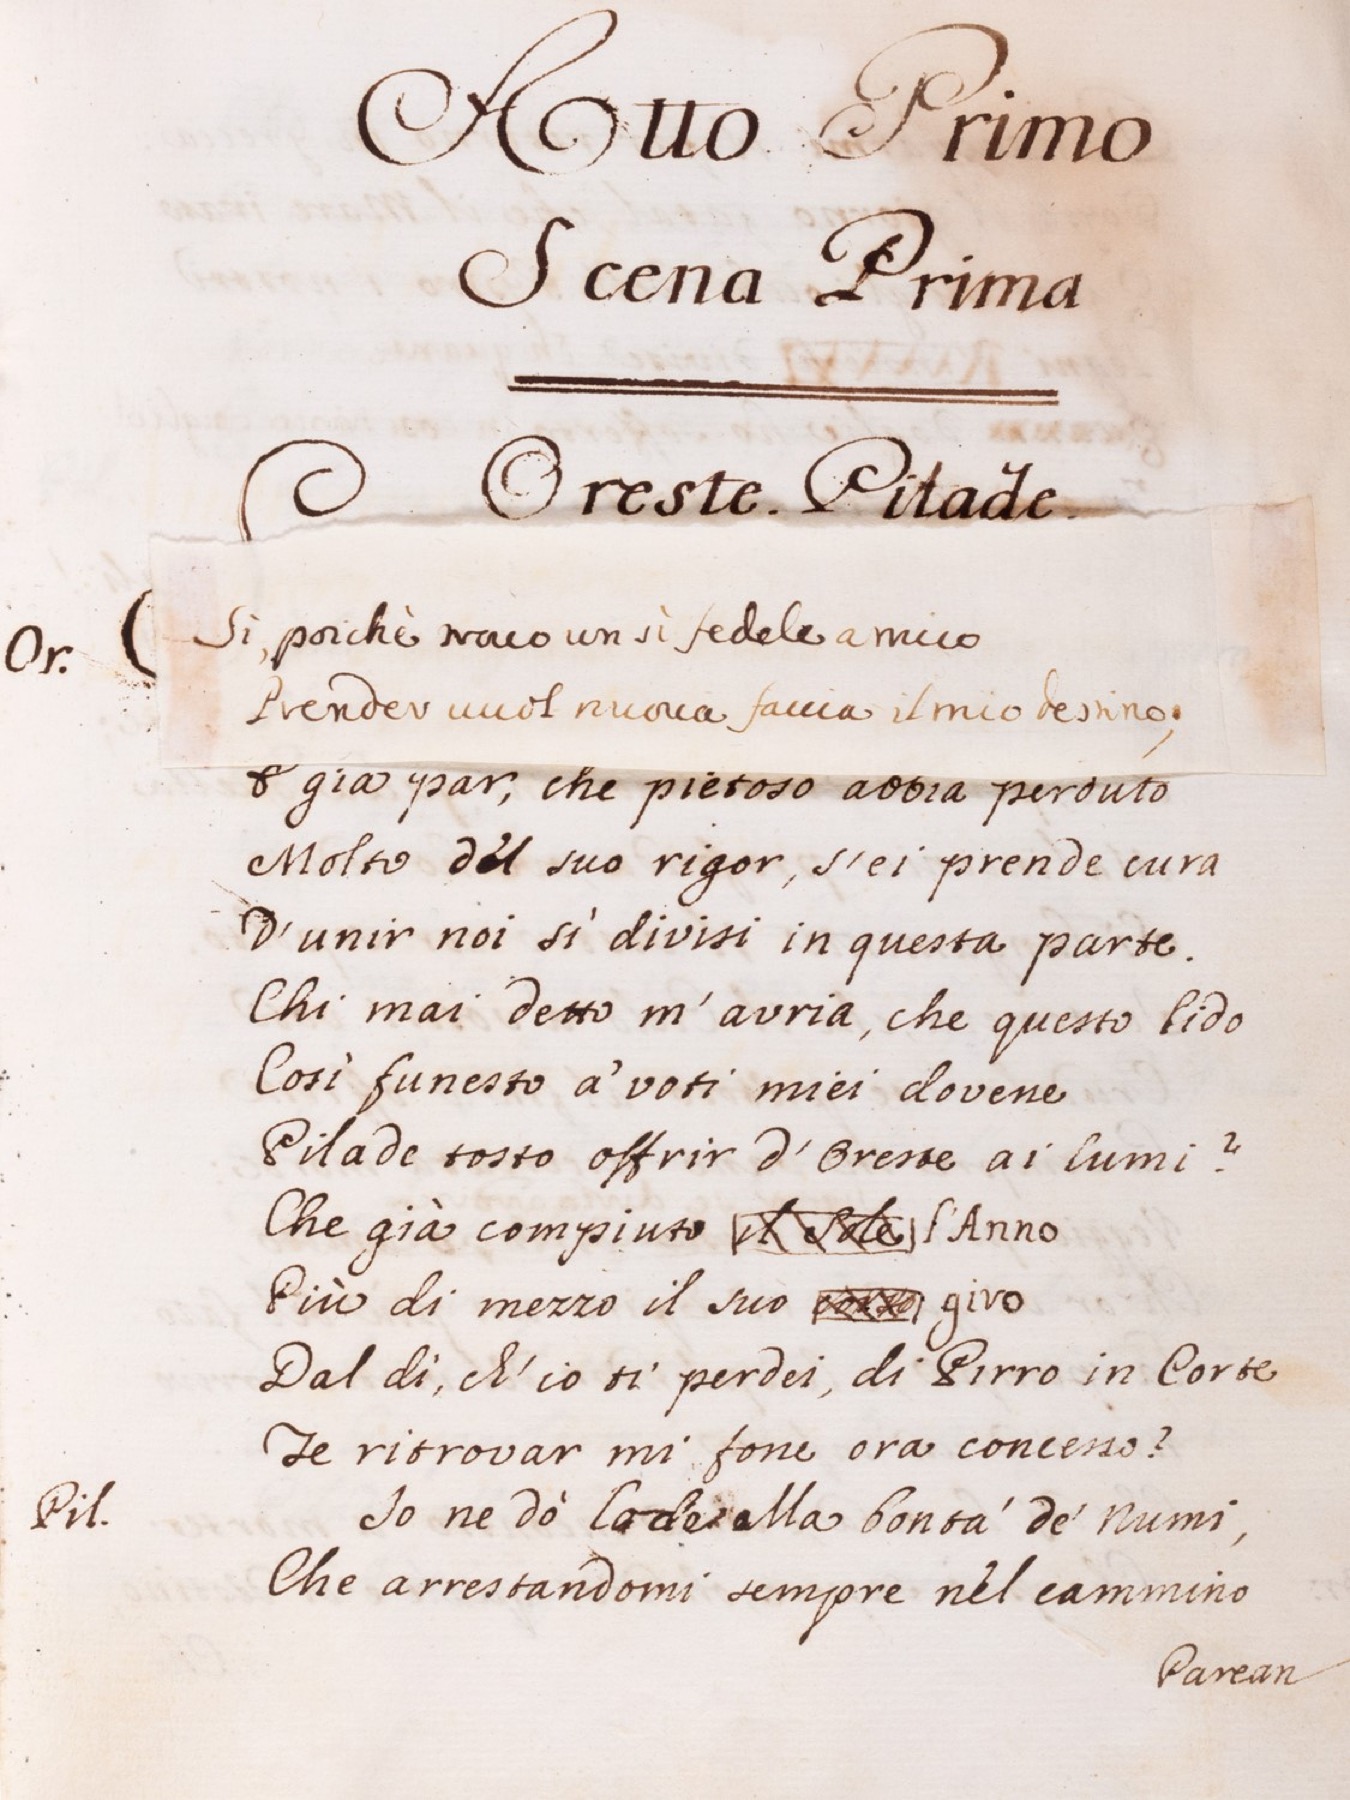 Atto Primo
Scena Prima
Oreste. Pilade.
Or. Sì, poichè trovo un sì fedele amico
Prender vuol nuova faccia il mio destino;
E già par, che pietoso abbia perduto
Molto dèl suo rigor, s'ei prende cura
D'unir noi sì divisi in questa parte.
Chi mai detto m'avria, che questo lido
Così funesto a' voti miei dovesse
Pilade tosto offrir d'Oreste ai lumi?
Che già compiuto il Sole l'Anno
Più di mezzo il suo corso giro
Dal dì, ch'io ti perdei, di Pirro in Corte
Te ritrovar mi fosse ora concesso?
Pil. Io ne dò lode alla bontà de' Numi,
Che arrestandomi sempre nèl cammino
Parean